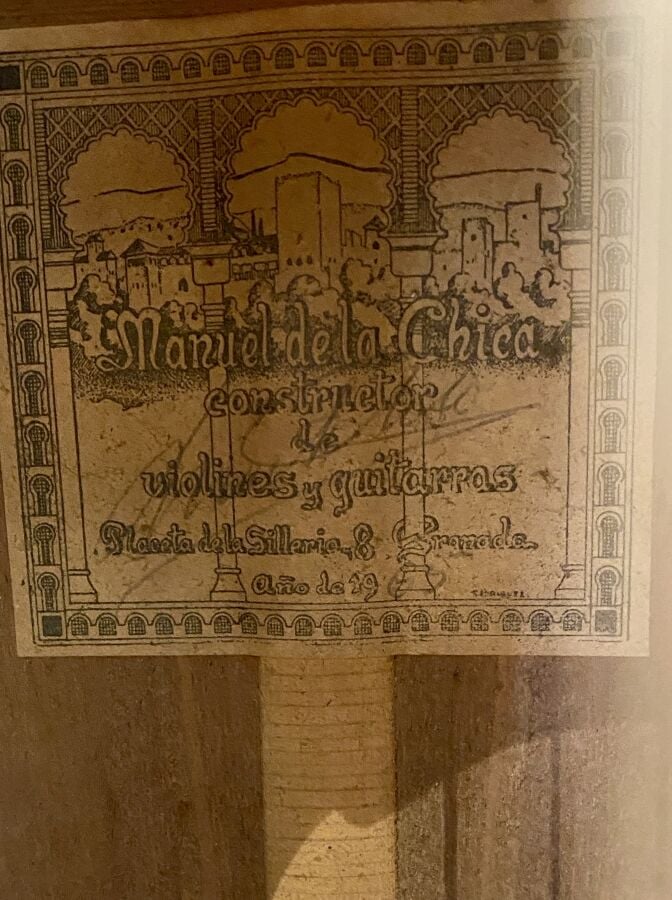 Manuel de la Chica
constructor
de
violines y guitarras
Placeta de la Silleria, 8 Granada
Año de 19